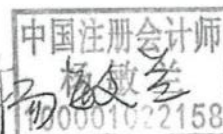 中国注册会计师
杨敏兰
100001022158